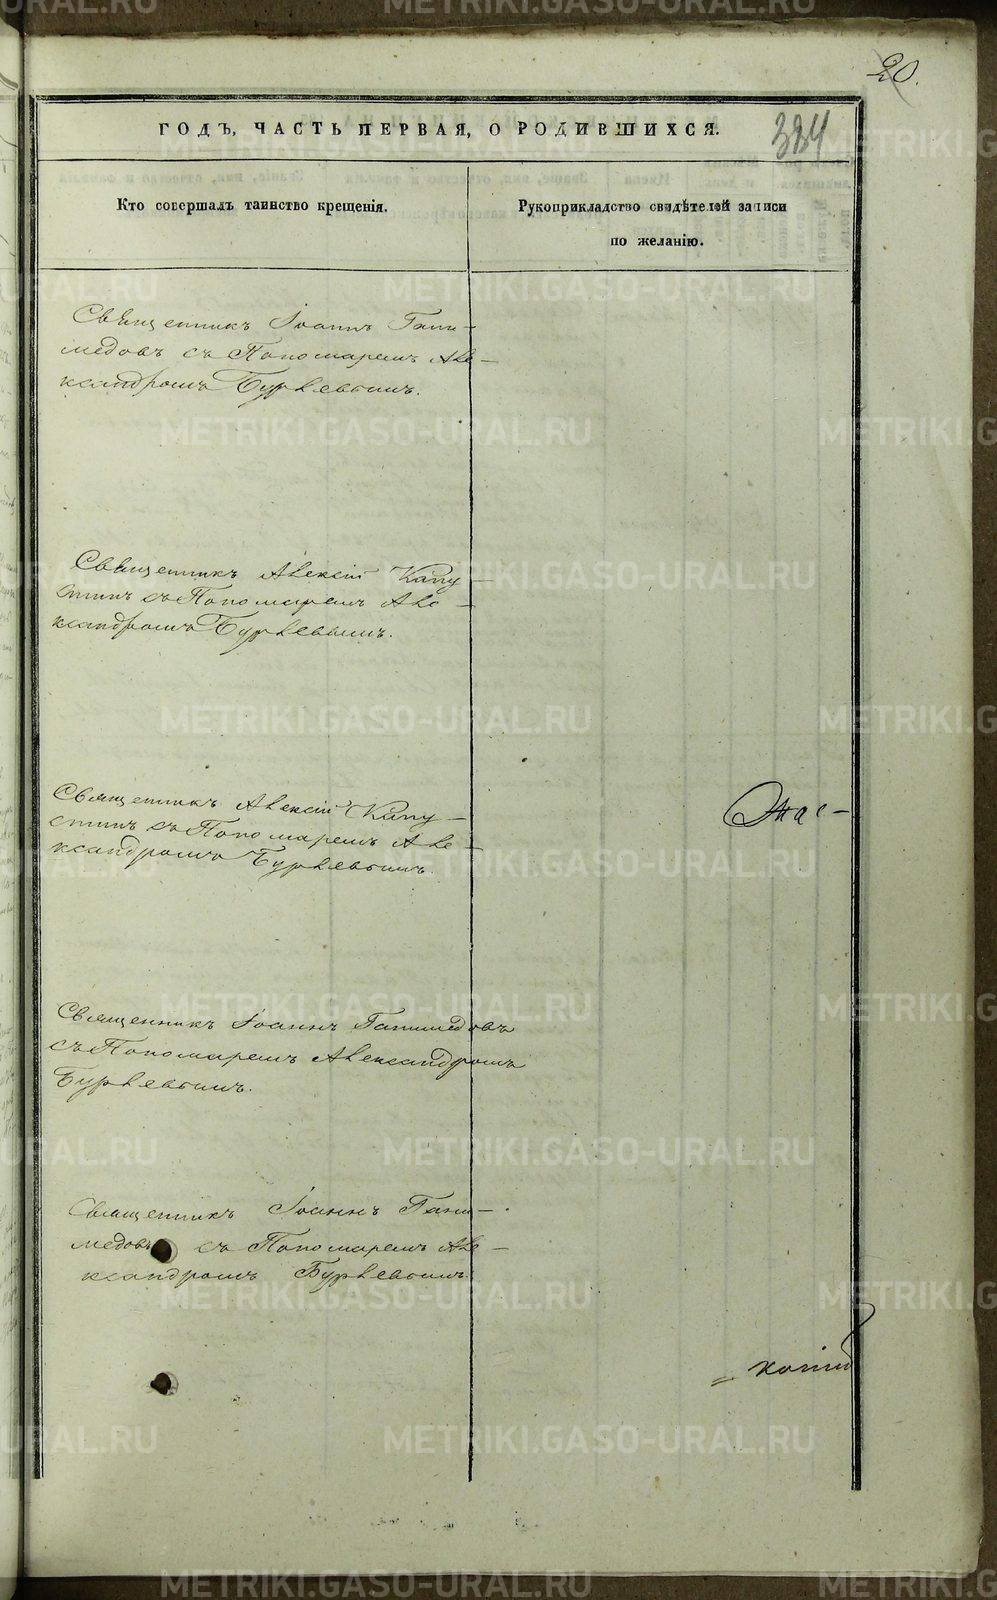 20.
384
ГОДЪ, ЧАСТЬ ПЕРВАЯ, О РОДИВШИХСЯ.
Кто совершалъ таинство крещенія.
Рукоприкладство свидѣтелей записи
по желанію.
Священникъ Іоаннъ Гани-
медовъ съ Пономаремъ Але-
ксандромъ Бурлевымъ.
Священникъ Алексій Капу-
стинъ съ Пономаремъ Але-
ксандромъ Бурлевымъ.
Священникъ Алексій Капу-
стинъ съ Пономаремъ Але-
ксандромъ Бурлевымъ.
Священникъ Іоаннъ Ганимедовъ
съ Пономаремъ Александромъ
Бурлевымъ.
Священникъ Іоаннъ Гани-
медовъ съ Пономаремъ Але-
ксандромъ Бурлевымъ.
METRIKI.GASO-URAL.RU